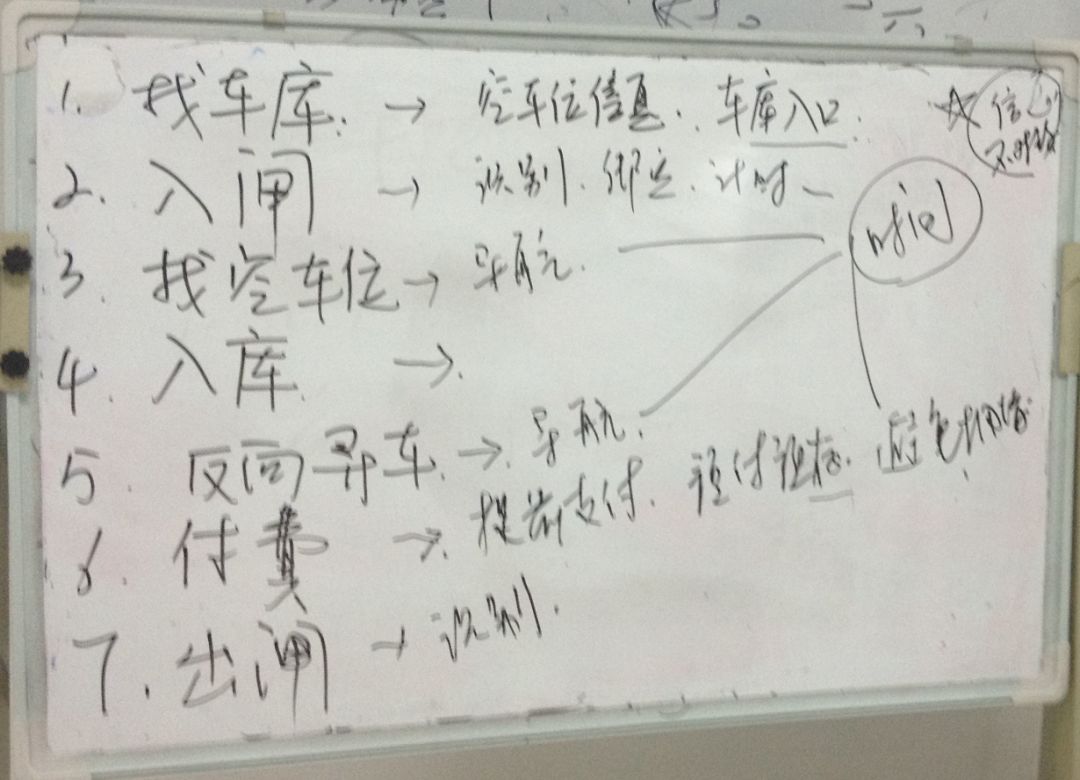 1. 找车库. → 空车位信息. 车库入口.
☆ 信息
不对称
2. 入闸 → 识别. 绑定. 计时
时间
3. 找空车位 → 导航.
4. 入库 →
5. 反向寻车. → 导航.
6. 付费 → 提前支付. 预付 避免拥堵.
7. 出闸 → 识别.